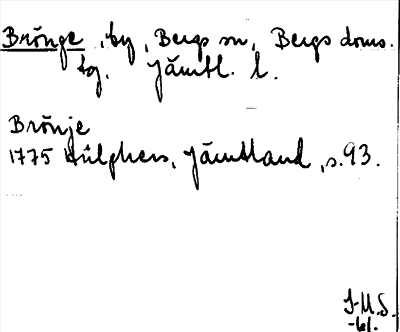 Brönge, by, Bergs sn, Bergs doms.
tg. Jämtl. l.
Brönje
1775 Hülphers, Jämtland, s. 93.
J.M.S.
-61.